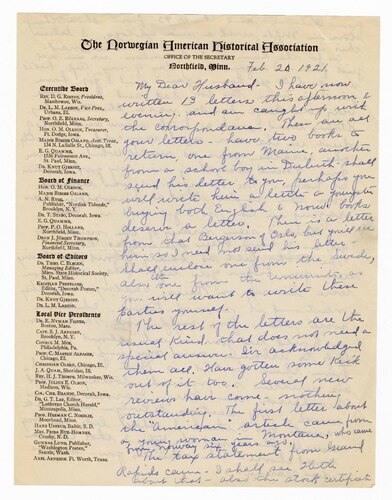 The Norwegian American Historical Association
OFFICE OF THE SECRETARY
Northfield, Minn.
Feb. 20 1921.
Executive Board
President,
Manitowoc, Wis.
DR. L. M. LARSON, Vice Pres.,
Urbana, Ill.
Secretary,
Northfield, Minn.
HON. O. M. OLESON, Treasurer,
Ft. Dodge, Iowa.
MAJOR BIRGER OSLAND, Asst. Treas.,
134 N. LaSalle St., Chicago, Ill.
E. G. QUAMME,
St. Paul, Minn.
DR. KNUT GJERSET,
Decorah, Iowa.
Board of Finance
HON. O. M. OLESON.
MAJOR BIRGER OSLAND.
A. N. RYGG,
Publisher, "Nordisk Tidende,"
Brooklyn, N. Y.
DR. T. STABO, Decorah, Iowa.
E. G. QUAMME.
PROF. P. O. HOLLAND,
Northfield, Minn.
DEAN J. JÖRGEN THOMPSON,
Financial Secretary,
Northfield, Minn.
Board of Editors
DR. THEO. C. BLEGEN,
Managing Editor,
Minn. State Historical Society,
St. Paul, Minn.
KRISTIAN PRESTGARD,
Editor, "Decorah Posten,"
Decorah, Iowa.
DR. KNUT GJERSET.
DR. L. M. LARSON.
Local Vice Presidents
Boston, Mass.
CAPT. S. J. ARNESEN,
Brooklyn, N. Y.
CONSUL M. MOE,
Philadelphia, Pa.
Chicago, Ill.
CHRISTIAN OLSEN, Chicago, Ill.
Sheridan, Ill.
REV. H. J. THORPE, Milwaukee, Wis.
PROF. JULIUS E. OLSON,
Madison, Wis.
Decorah, Iowa.
DR. G. T. LEE, Editor
"Lutheran Church Herald,"
Minneapolis, Minn.
Moorhead, Minn.
Babtic, S. D.
Crosby, N. D.
GUNNAR LUND, Publisher,
"Washington Posten,"
Seattle, Wash.
Ft. Worth, Texas.
My Dear Husband - I have now
written 13 letters this afternoon &
evening and am caught up with
the correspondence. These are all
your letters - have two books to
return, one from Maine, another
from a school boy in Duluth - shall
send his letter to you, perhaps you
will write him a letter - a youngster
buying both English & Norse books
deserve a letter. There is a letter
from that Bergerson of Oslo, but you'll see
him so I need not send his letter.
Shall enclose one from the Swede,
also one from the University as
you will want to write these
parties yourself.
The rest of the letters are the
usual kind that does not need a
special answer. I've acknowledged
them all. Have gotten some kick
out of it too. Several new
reviews have come - nothing
outstanding. The first letter about
the "American" article came from
a young woman Montana, who came
from Norway six years ago.
The tax statement from Grand
Rapids came - I shall see
about that - also the stock certificate